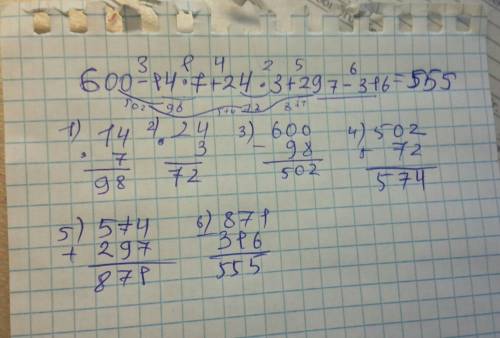 3 1 4 2 5 6
600-14·7+24·3+297-316=555
502 98 574 72 871
1) 14 2) 24 3) 600 4) 502
· 7 · 3 - 98 + 72
98 72 502 574
5) 574 6) 871
+ 297 - 316
871 555